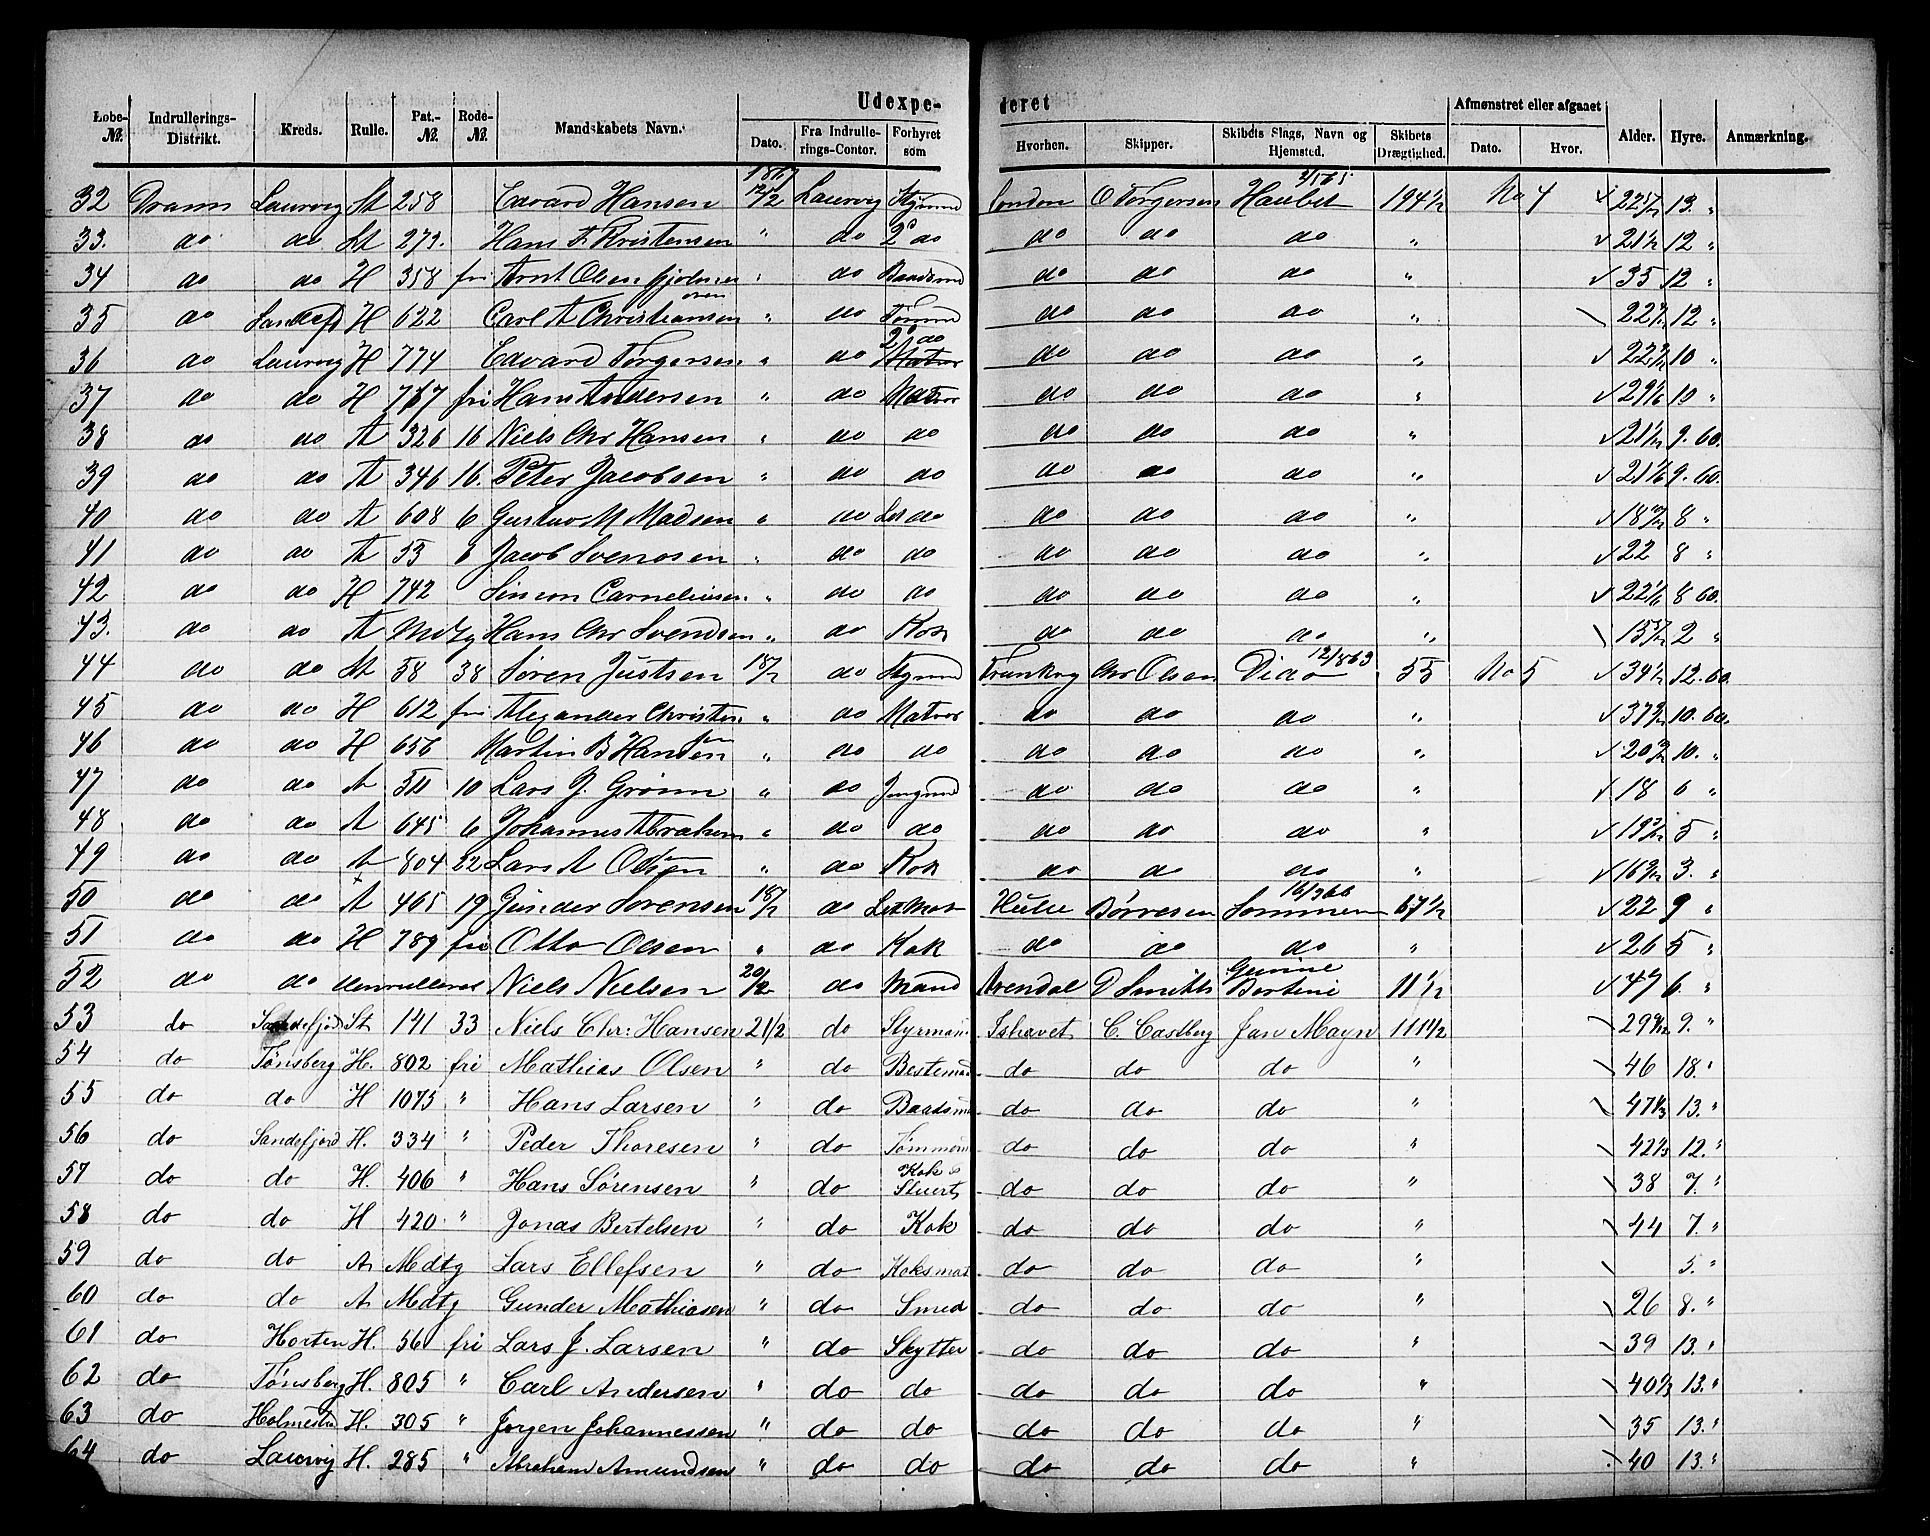 Udexpederet
Løbe-№. Indrullerings-Distrikt. Kreds. Rulle. Pat.-№. Rode-№. Mandskabets Navn. Dato. Fra Indrullerings-Contor. Forhyret som Hvorhen. Skipper. Skibets Slags, Navn og Hjemsted. Skibets Drægtighed. Afmønstret eller afgaaet Dato. Hvor. Alder. Hyre. Anmærkning.
32 Dram Laurvig St 258 Edvard Hansen 1867 12/2 Laurvig Stymd London O Torgersen Haabet 194½ No 4 13 "
33. do do St 279. Hans A Kristensen " do 2 do do do do " 21½ 12 "
34 do do H 358 fri Arnt Olsen " do Baadsmd do do do " 35 12 "
35 do Sandefjd H 622 Carl A Christiansen " do Tømmd do do do " 12 "
36 do Laurvig H 774 Edvard Torgersen " do 2 do do do do " 10 "
37 do do H 767 fri Hans Andersen " do Matros do do do " 10 "
38 do do A 326 16 Niels Chr Hansen " do do do do do " 9. 60.
39 do do A 346 16. Peter Jacobsen " do do do do do " 9. 60.
40 do do A 608 6 Gustav M Madsen " do Let do do do do " 8 "
41 do do A 53 6 Jacob Svendsen " do do do do do " 22 8 "
42 do do H 742 Simon Carneliusen " do do do do do " 8 60.
43. do do A Mdtg Hans Chr Svendsen " do Kok do do do " 2 "
44 do do St 58 38 Søren Justsen 18/2 do Stymd Frankrg Chr Olsen Dido 12/863 55 No 5 34½ 12. 60.
45 do do H 612 fri Alexander Christensen " do Matros do do do " 10. 60.
46 do do H 656 Martin B Hansen " do do do do do " 10. "
47 do do A 511 10 Lars J. Grønn " do Jungmd do do do " 18 6 "
48 do do A 645 6 Johannes Abrahamsen " do do do do do " 5 "
49 do do A 804 22 Lars A Olsen " do Kok do do do " 3. "
50 do do A 465 19 Gunder Sørensen 18/2 do Let Mat Børresen Sommeren 16/366 67½ 22 9 "
51 do do H 789 fri Otto Olsen " do Kok do do do " 26 5 "
52 do do Niels Nielsen 20/2 do Mand Arendal D Smith Bertine 11½ 47 6 "
53 do Sandefjord St 141 33 Niels Chr: Hansen 21/2 do Styrman Ishavet C. Castberg Jan Mayn 111½ 9. "
54 do Tønsberg H. 802 fri Mathias Olsen " do Bestemd do do do " 46 18. "
55 do do H 1073 " Hans Larsen " do Baadsmd do do do " 47⅓ 13. "
56 do Sandefjord H. 334 " Peder Thoresen " do Tømmerm do do do " 42⅓ 12. "
57 do do H. 406 " Hans Sørensen " do Kok & Stuert do do do " 38 7. "
58 do do H 420 " Jonas Bertelsen " do Kok do do do " 44 7. "
59 do do A Mdtg Lars Ellefsen " do Koksmat do do do " 5. "
60 do do A Mdtg Gunder Mathiasen " do Smed do do do " 26 8. "
61 do Horten H. 56 fri Lars J. Larsen " do Skytter do do do " 39 13. "
62 do Tønsberg H. 805 " Carl Andersen " do do do do do " 40⅓ 13. "
63 do Holmestrd H. 305 " Jørgen Johannessen " do do do do do " 35 13. "
64 do Laurvig H. 285 " Abraham Amundsen " do do do do do " 40 13. "